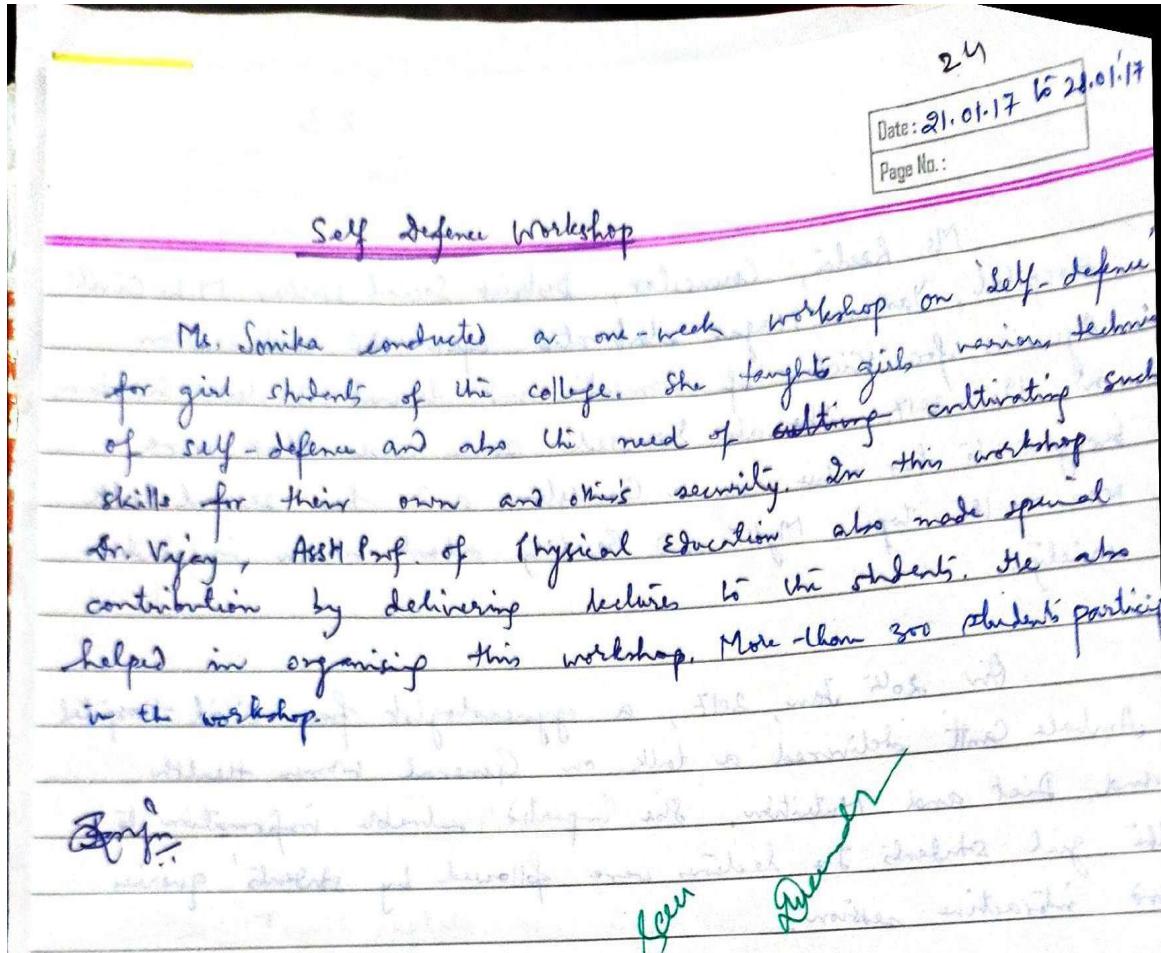 24
Date: 21.01.17 to 28.01.17
Page No.:
Self Defence Workshop
Ms. Sonika conducted a one-week workshop on 'Self-defence'
for girl students of the college. She taughts girls various techni
of self-defence and also the need of cultivating such
skills for their own and other's security. In this workshop
Dr. Vijay, Asstt Prof. of Physical Education also made special
contribution by delivering lectures to the students. He also
helped in organising this workshop. More than 300 students particip
in the workshop.